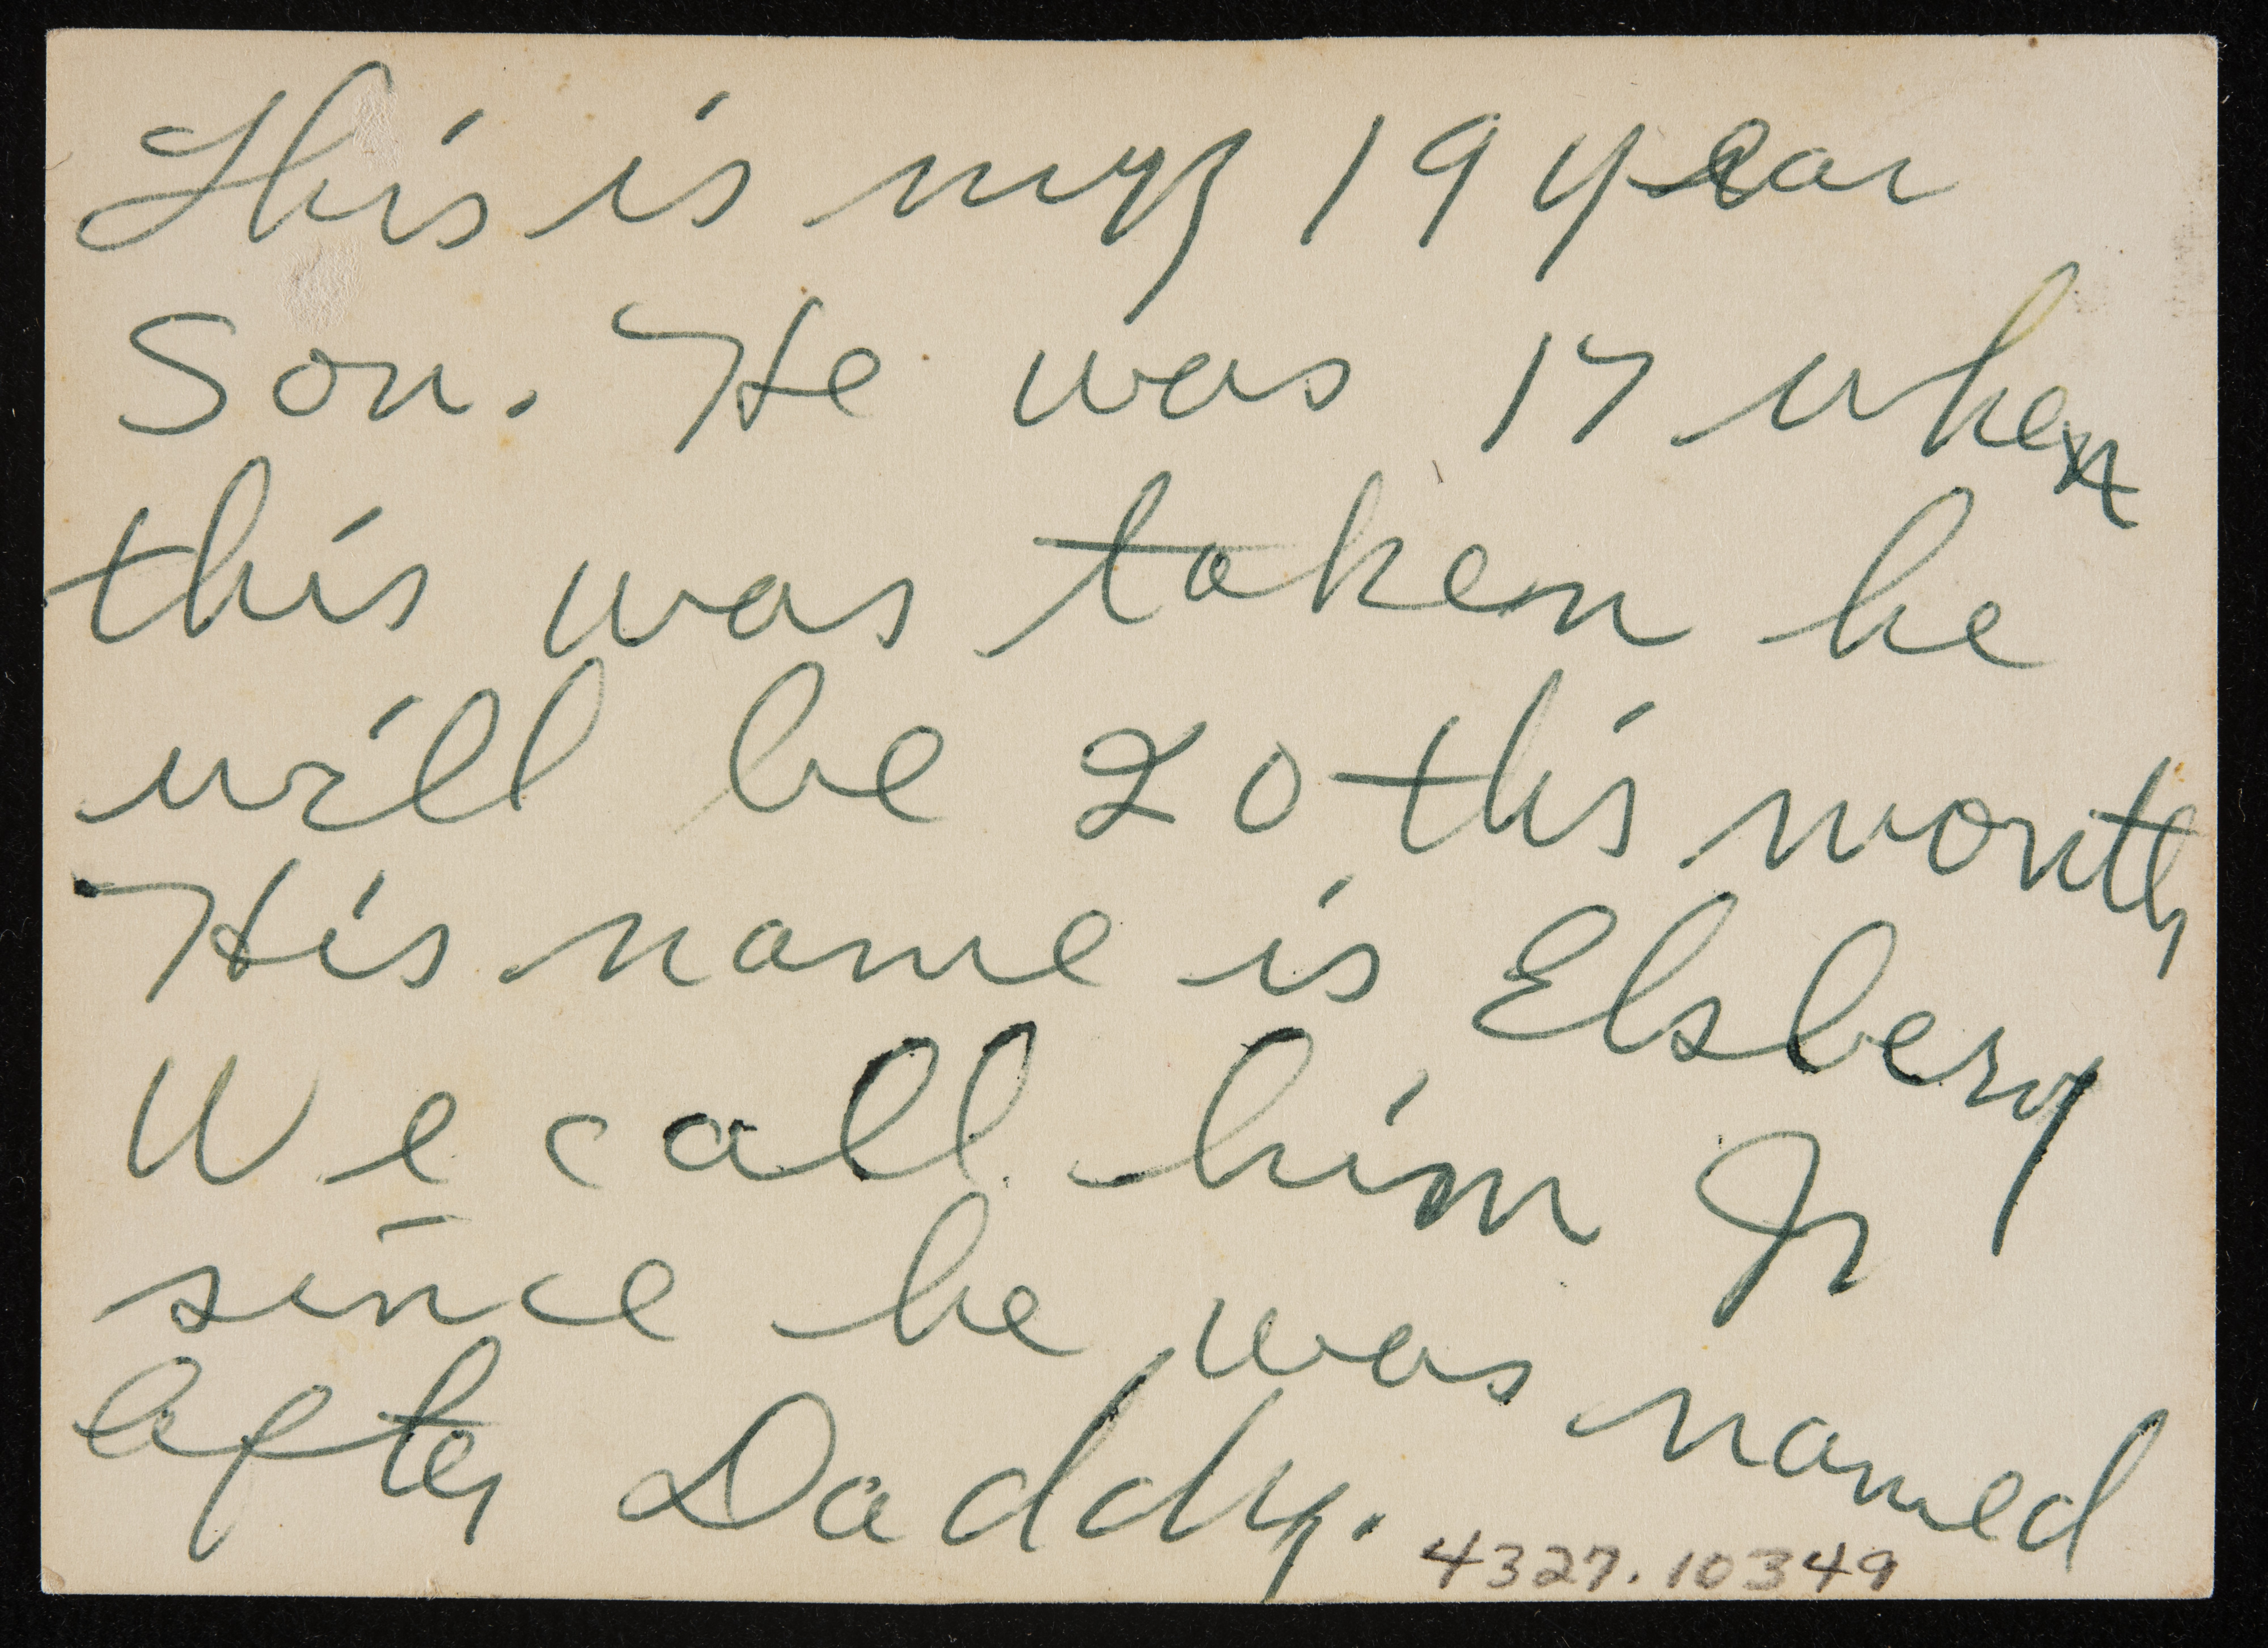 This is my 19 year
Son. He was 17 when
this was taken he
will be 20 this month
His name is Elsbery
We call him Jr
since he was named
after Daddy.
4327.10349